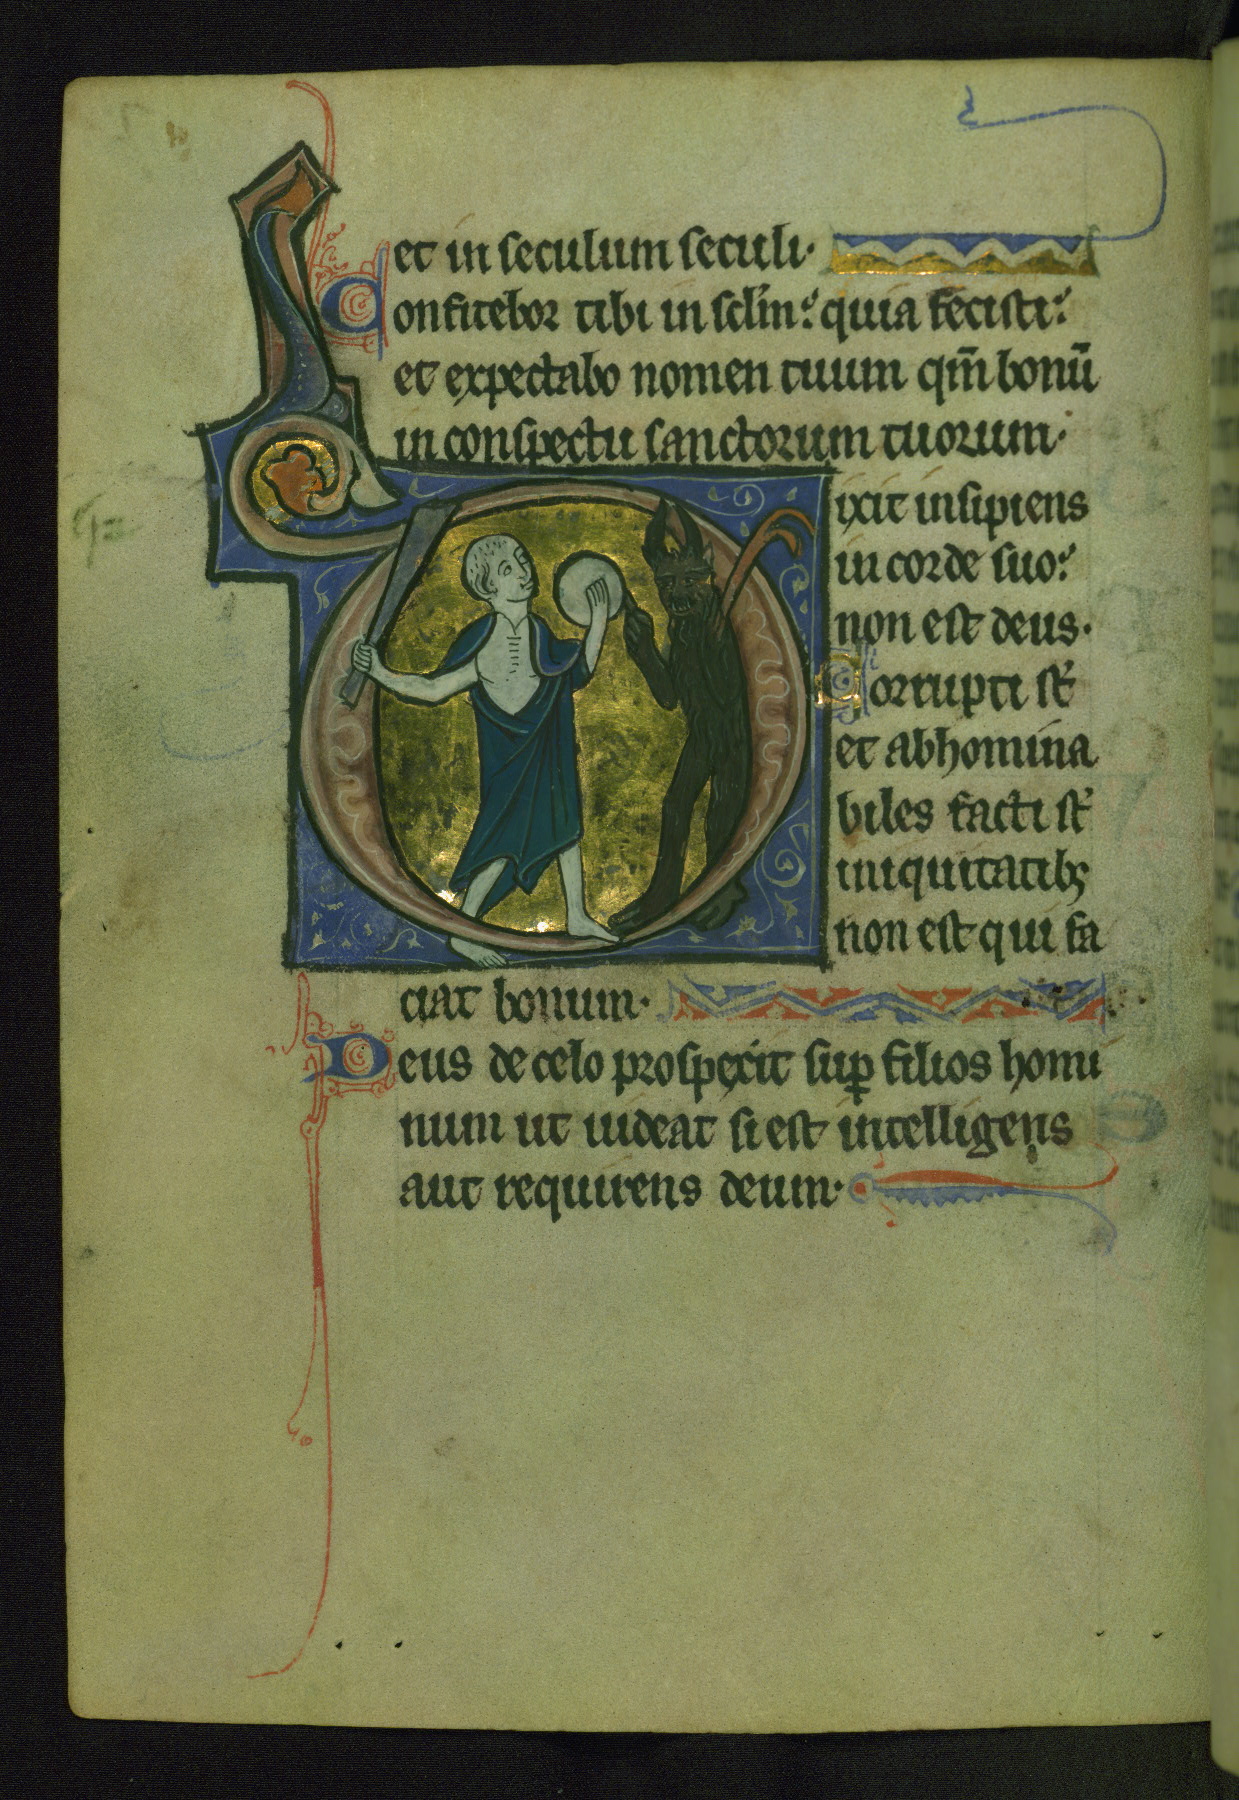 et in seculum seculi·
Confitebor tibi in sclm̄: quia fecisti:
et expectabo nomen tuum qm̄ bonū
in conspectu sanctorum tuorum·
Dixit insipiens
in corde suo:
non est deus·
Corrupti st̄
et abhomina
biles facti st̄
iniquitatibꝫ
non est qui fa
ciat bonum·
Deus de celo prospexit suꝑ filios homi
num ut uideat si est intelligens
aut requirens deum·